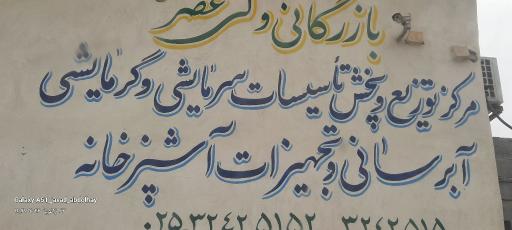 بازرگانی ولی عصر
مرکز توزیع و پخش تأسیسات سرمایشی و گرمایشی
آبرسانی و تجهیزات آشپزخانه
۰۲۵۳۲۴۲۵۱۵۲
Galaxy A51 _javad_abdolhay